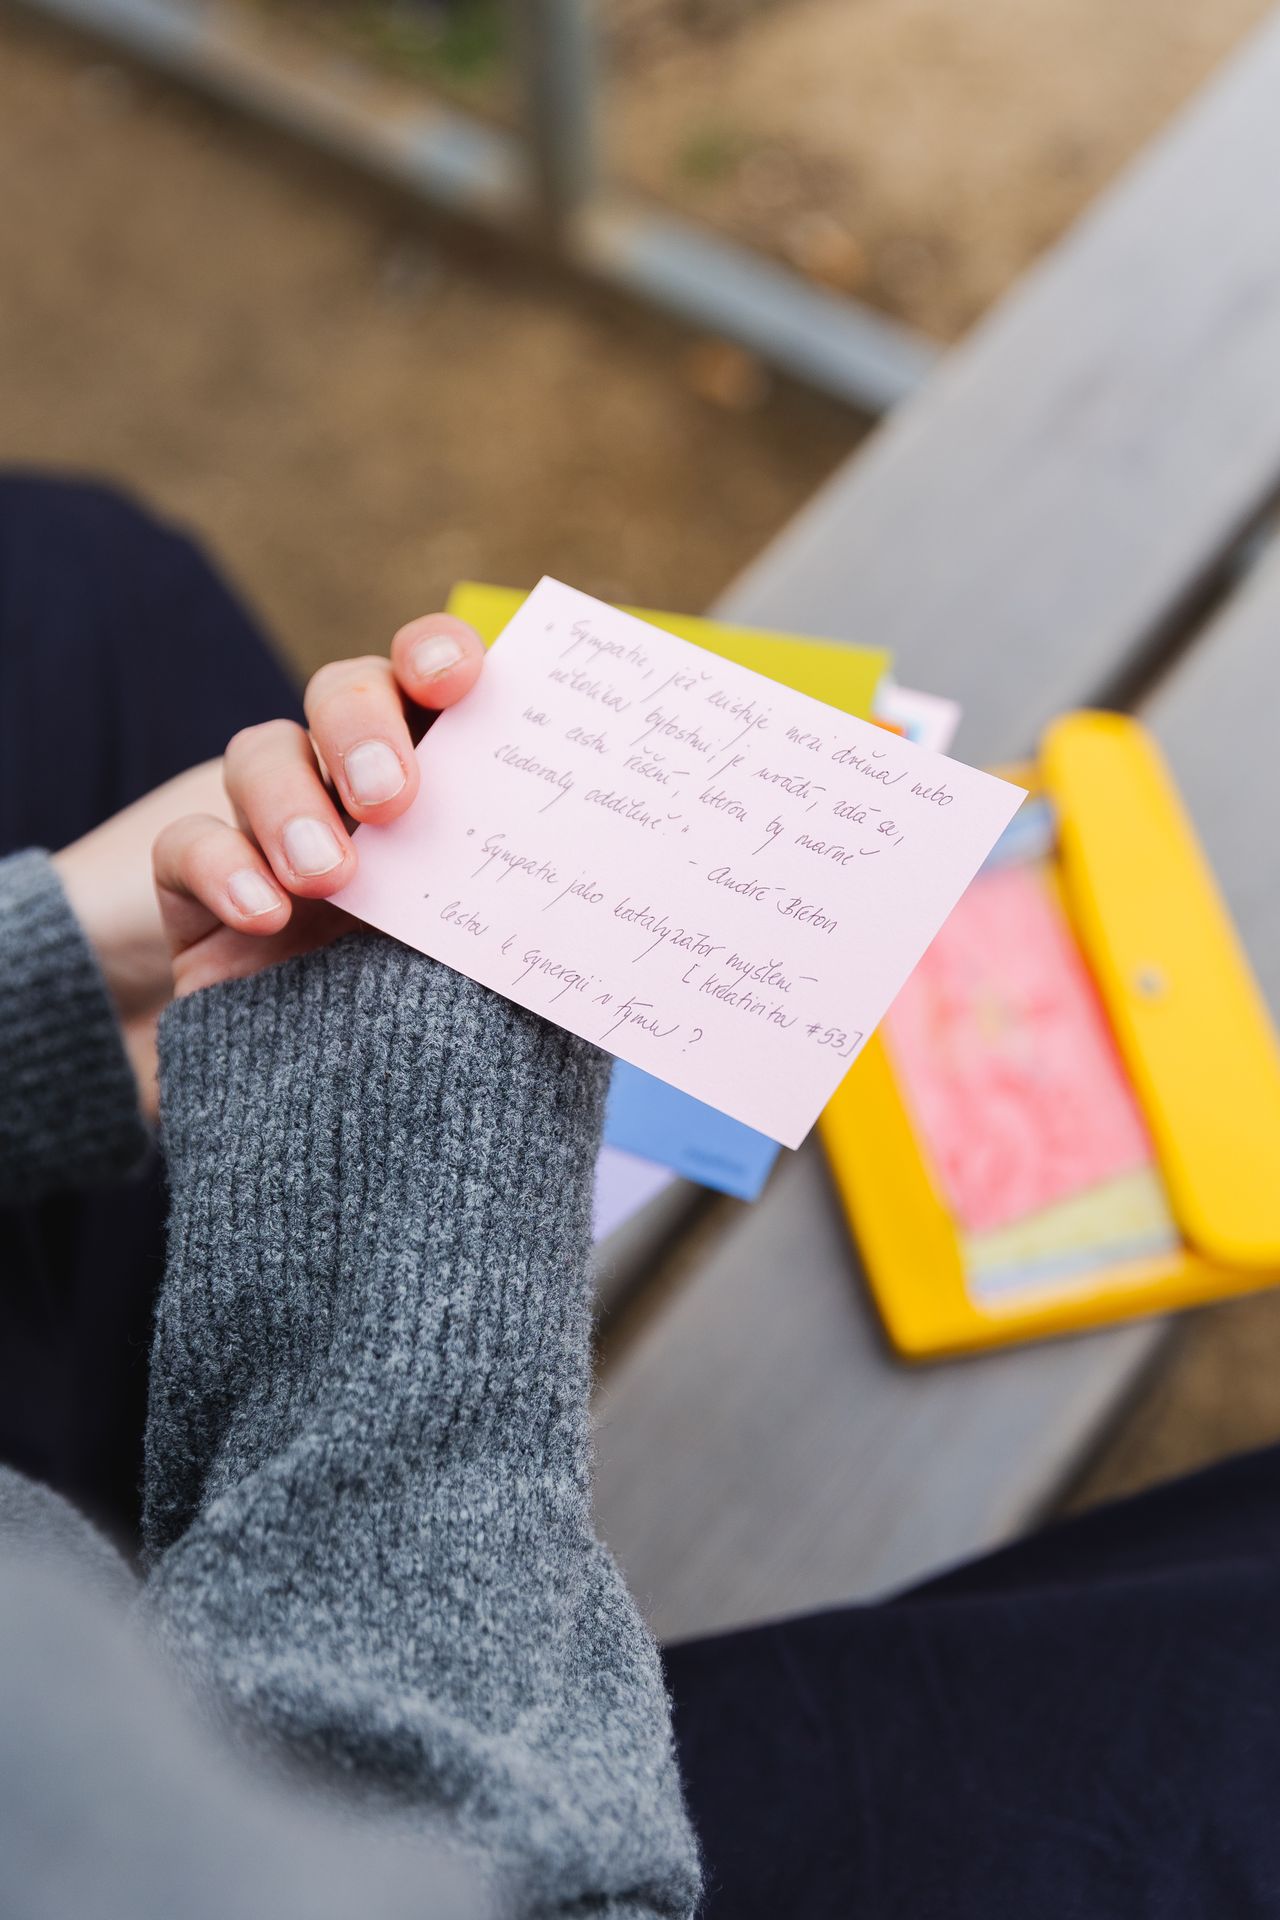 "Sympatie, jež existuje mezi dvěma nebo
několika bytostmi, je uvádí, zdá se,
na cestu řešení, kterou by marně
sledovaly odděleně."
- André Breton
• Sympatie jako katalyzátor myšlení
[Kreativita #53]
• Cesta k synergii v týmu?